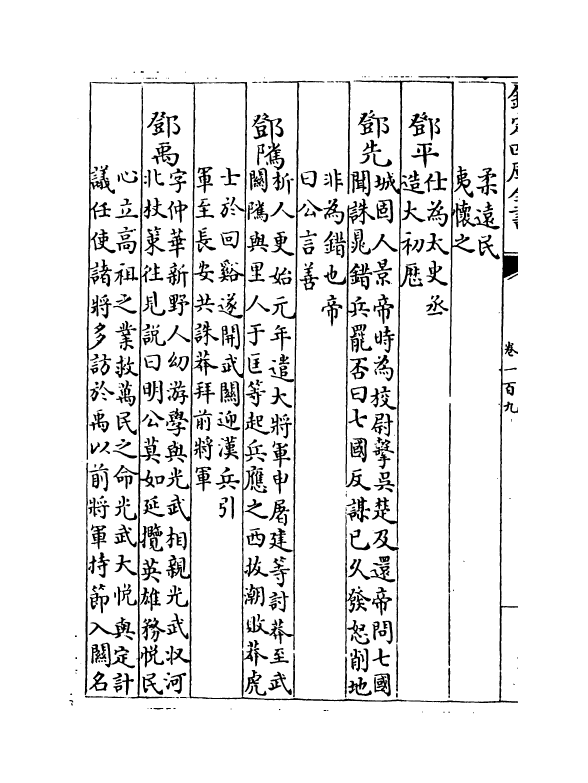 欽定四庫全書
卷一百九
柔遠民
夷懷之
鄧平 仕為太史丞
造大初歴
鄧先 城固人景帝時為校尉擊吳楚及還帝問七國
聞誅晁錯兵罷否曰七國反謀已久發怒削地
非為錯也帝
曰公言善
鄧隲 析人更始元年遣大將軍申屠建等討莽至武
關隲與里人于匡等起兵應之西拔潮敗莽虎
士於回谿遂開武關迎漢兵引
軍至長安共誅莽拜前將軍
鄧禹 字仲華新野人幼游學與光武相親光武収河
北杖策往見説曰明公莫如延攬英雄務悦民
心立高祖之業救萬民之命光武大悦與定計
議任使諸將多訪於禹以前將軍持節入關名